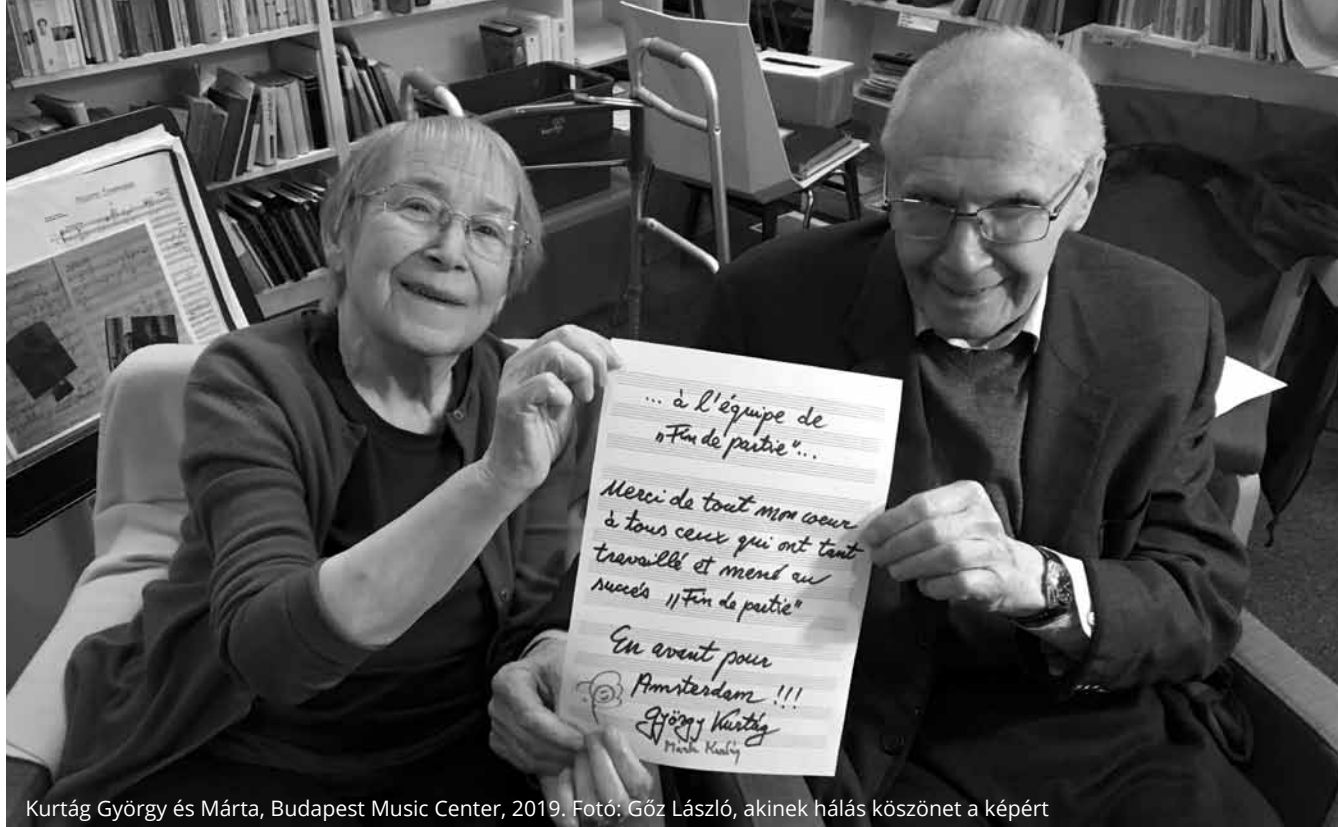 ... à l'équipe de
„Fin de partie"...
Merci de tout mon coeur
à tous ceux qui ont tant
travaillé et mené au
succés „Fin de partie"
En avant pour
Amsterdam !!!
György Kurtág
Márta Kurtág
Kurtág György és Márta, Budapest Music Center, 2019. Fotó: Gőz László, akinek hálás köszönet a képért